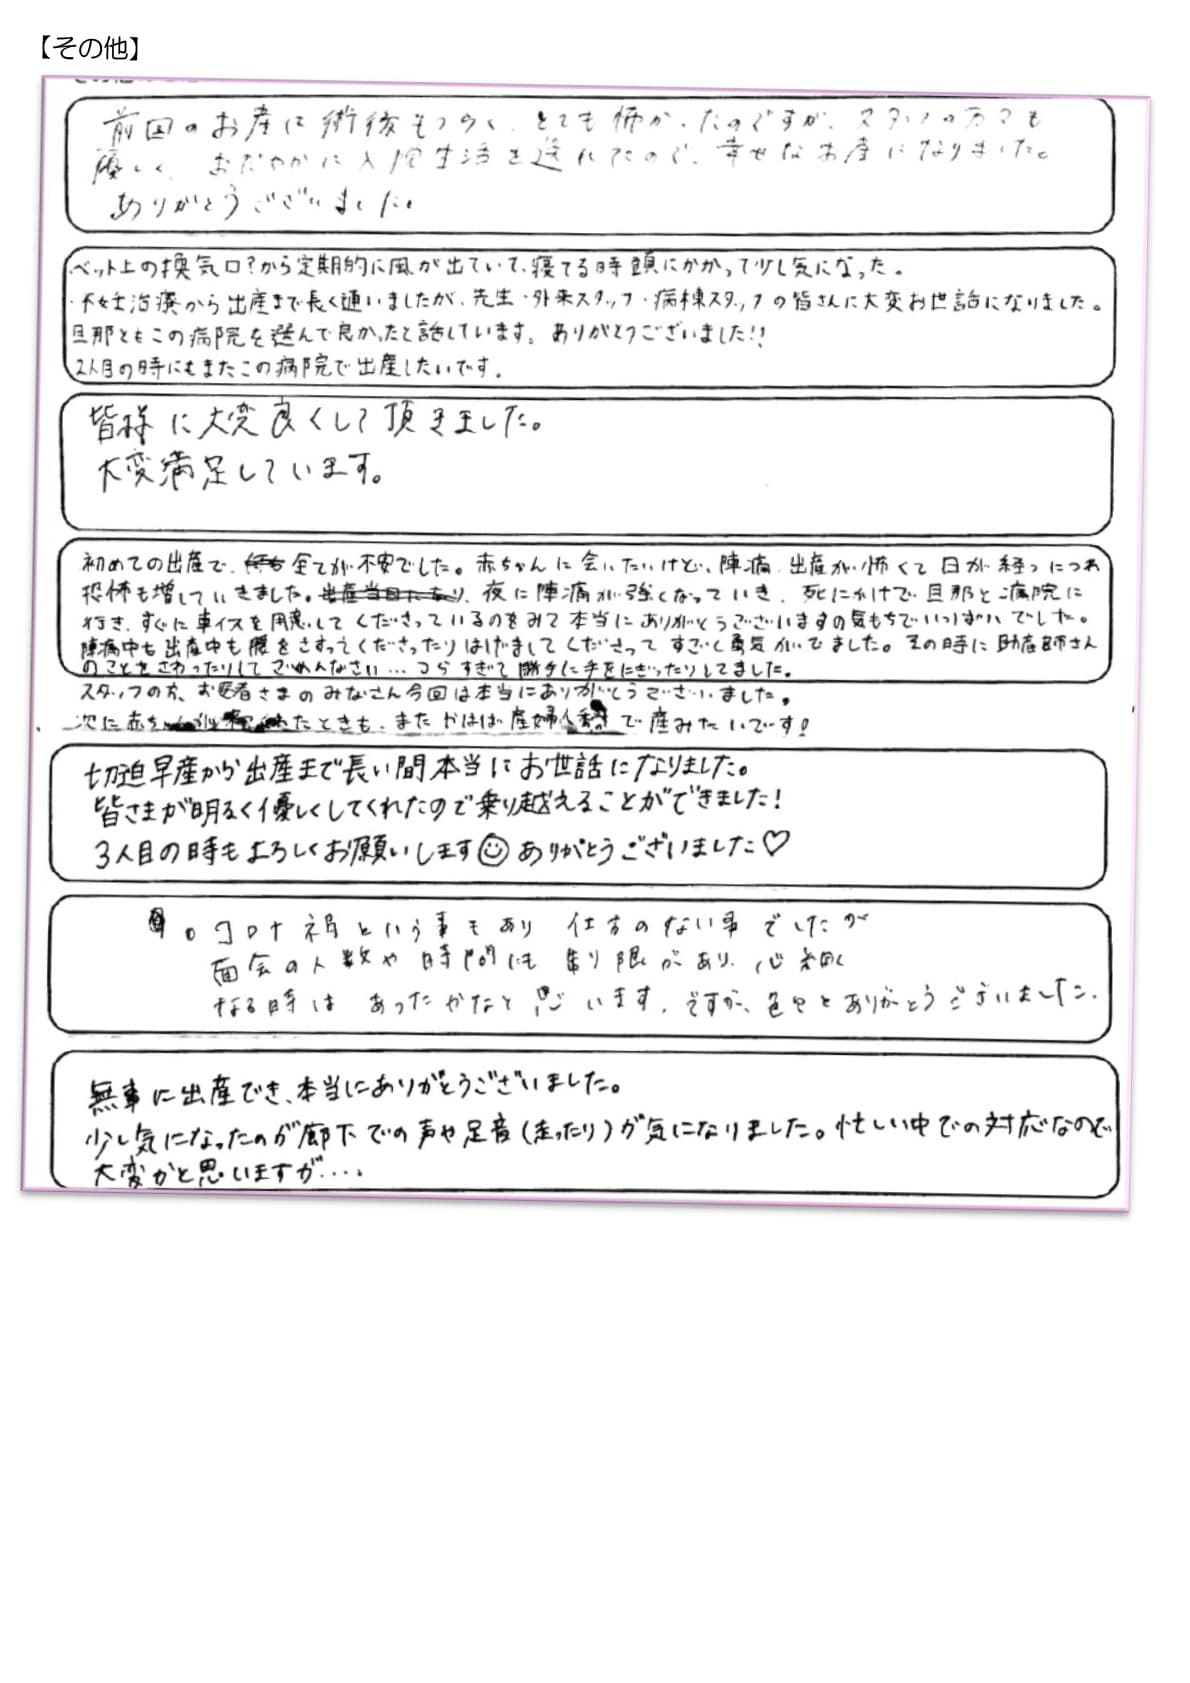 【その他】
前回のお産は術後もつらく、とても怖かったのですが、スタッフの方々も
優しく、おだやかに入院生活を送れたので、幸せなお産になりました。
ありがとうございました。
・ベット上の換気口?から定期的に風が出ていて、寝てる時頭にかかって少し気になった。
・不妊治療から出産まで長く通いましたが、先生・外来スタッフ・病棟スタッフの皆さんに大変お世話になりました。
旦那ともこの病院を選んで良かったと話しています。ありがとうございました!!
2人目の時にもまたこの病院で出産したいです。
皆様に大変良くして頂きました。
大変満足しています。
初めての出産で、全てが不安でした。赤ちゃんに会いたいけど、陣痛、出産が怖くて日が経つにつれ
恐怖も増していきました。夜に陣痛が強くなっていき、死にかけで旦那と病院に
行き、すぐに車イスを用意してくださっているのをみて本当にありがとうございますの気もちでいっぱいでした。
陣痛中も出産中も腰をさすってくださったりはげましてくださってすごく勇気がでました。その時に助産師さん
のことをさわったりしてごめんなさい…つらすぎて勝手に手をにぎったりしてました。
スタッフの方、お医者さまのみなさん今回は本当にありがとうございました。
次に赤ちゃんがたときも、またかはば産婦人科で産みたいです!
切迫早産から出産まで長い間本当にお世話になりました。
皆さまが明るく優しくしてくれたので乗り越えることができました!
3人目の時もよろしくお願いします☺ありがとうございました♡
。コロナ禍という事もあり 仕方のない事でしたが
面会の人数や時間にも制限があり、心細く
なる時は あったかなと思います。ですが、色々とありがとうございました。
無事に出産でき、本当にありがとうございました。
少し気になったのが廊下での声や足音(走ったり)が気になりました。忙しい中での対応なので
大変かと思いますが....